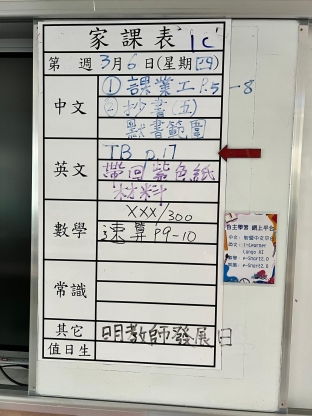 家課表 1C
第 週 3月6日(星期四)
中文
① 課業工 P.5-8
② 抄書(五)
默書範圍
英文
TB p.17
帶回紫色紙
材料
數學
XXX/300
速算 P9-10
常識
其它
明教師發展日
值日生
自主學習 網上平台